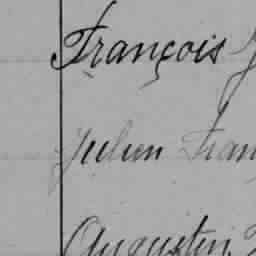 François
Julien Fran
Augustin